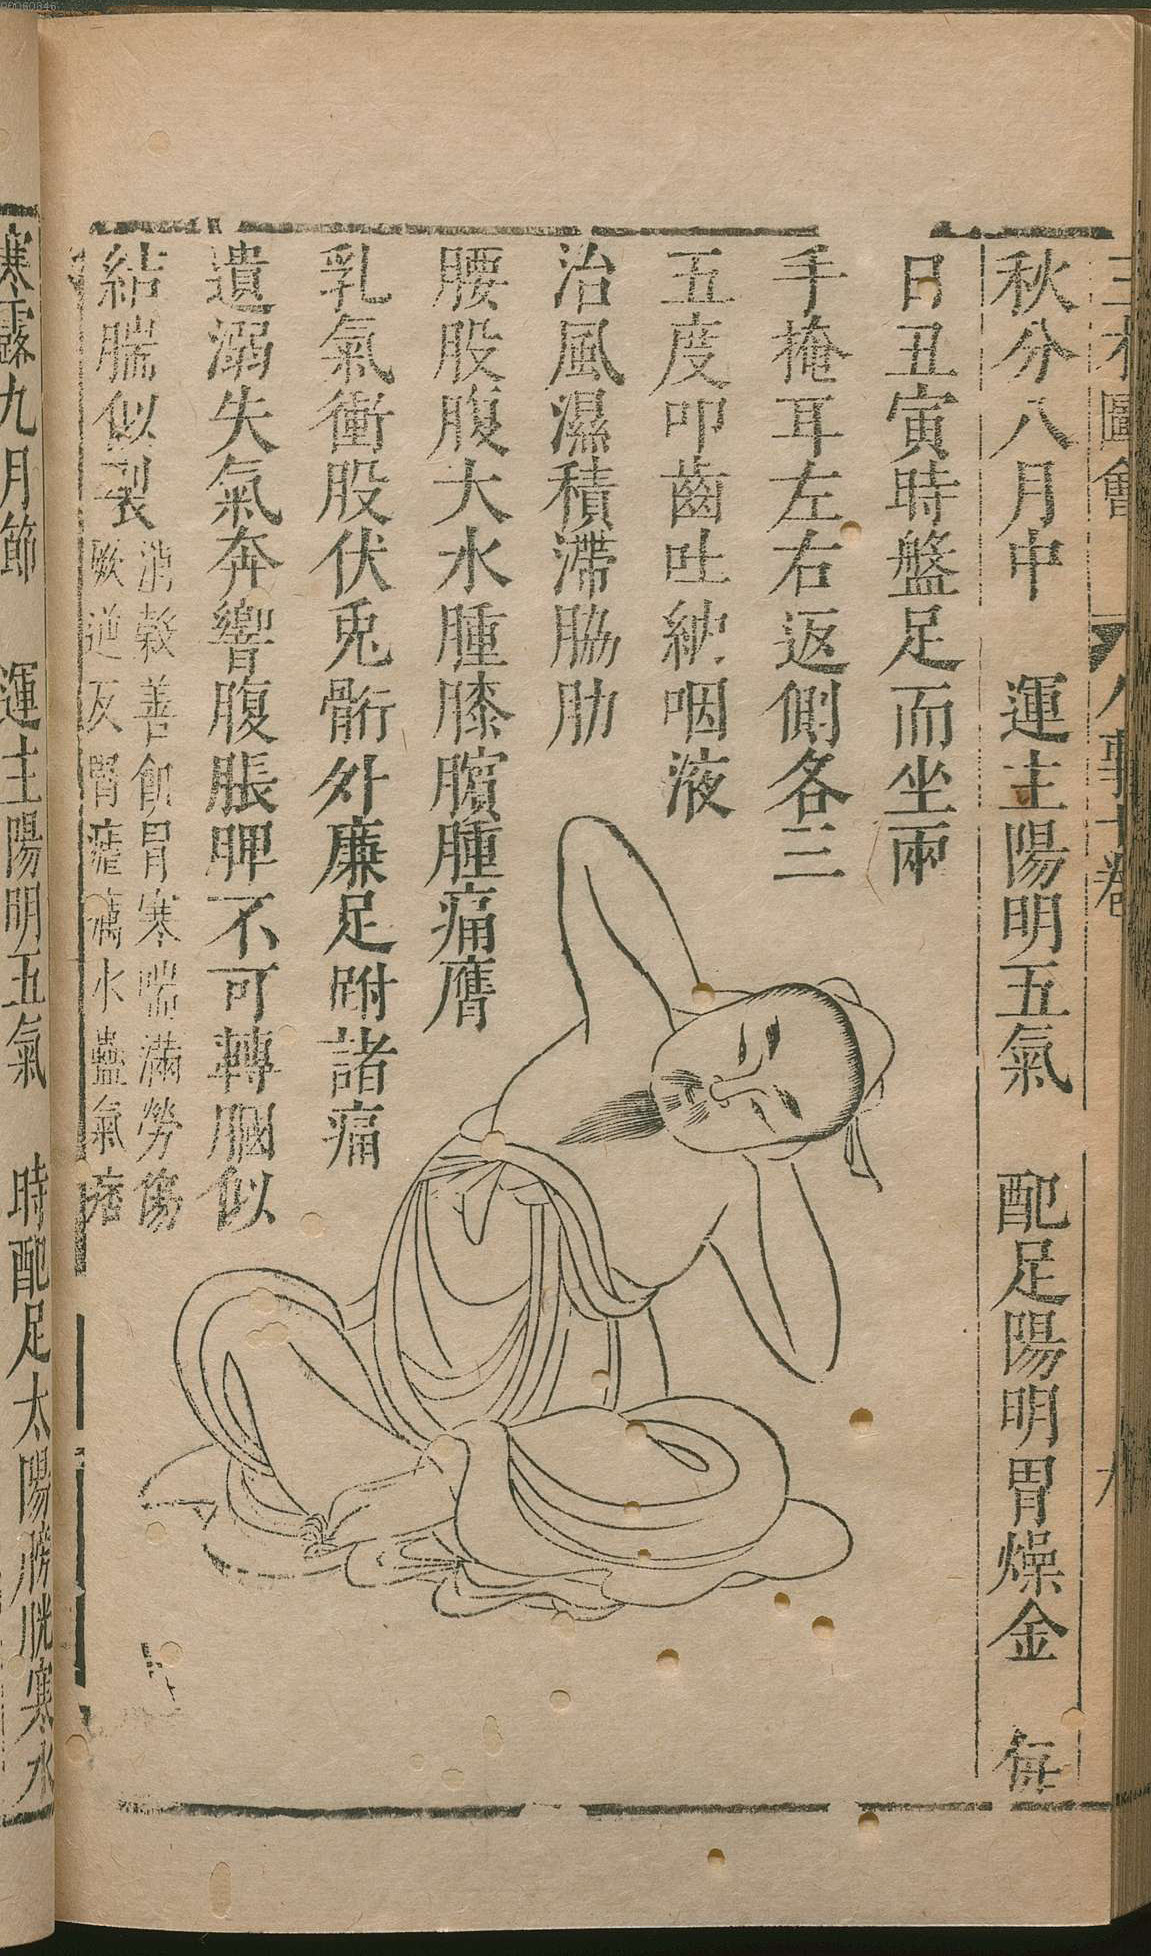 三才圖會 人事十卷 九
秋分八月中 運主陽明五氣 配足陽明胃燥金 每
日丑寅時盤足而坐兩
手掩耳左右返側各三
五度叩齒吐納咽液
治風濕積滯脇肋
腰股腹大水腫膝臏腫痛膺
乳氣衝股伏兎骭外廉足跗諸痛
遺溺失氣奔響腹脹脾不可轉膕似
結腨似裂
消穀善飢胃寒喘滿勞傷
寒露九月節 運主陽明五氣 時配足太陽膀胱寒水